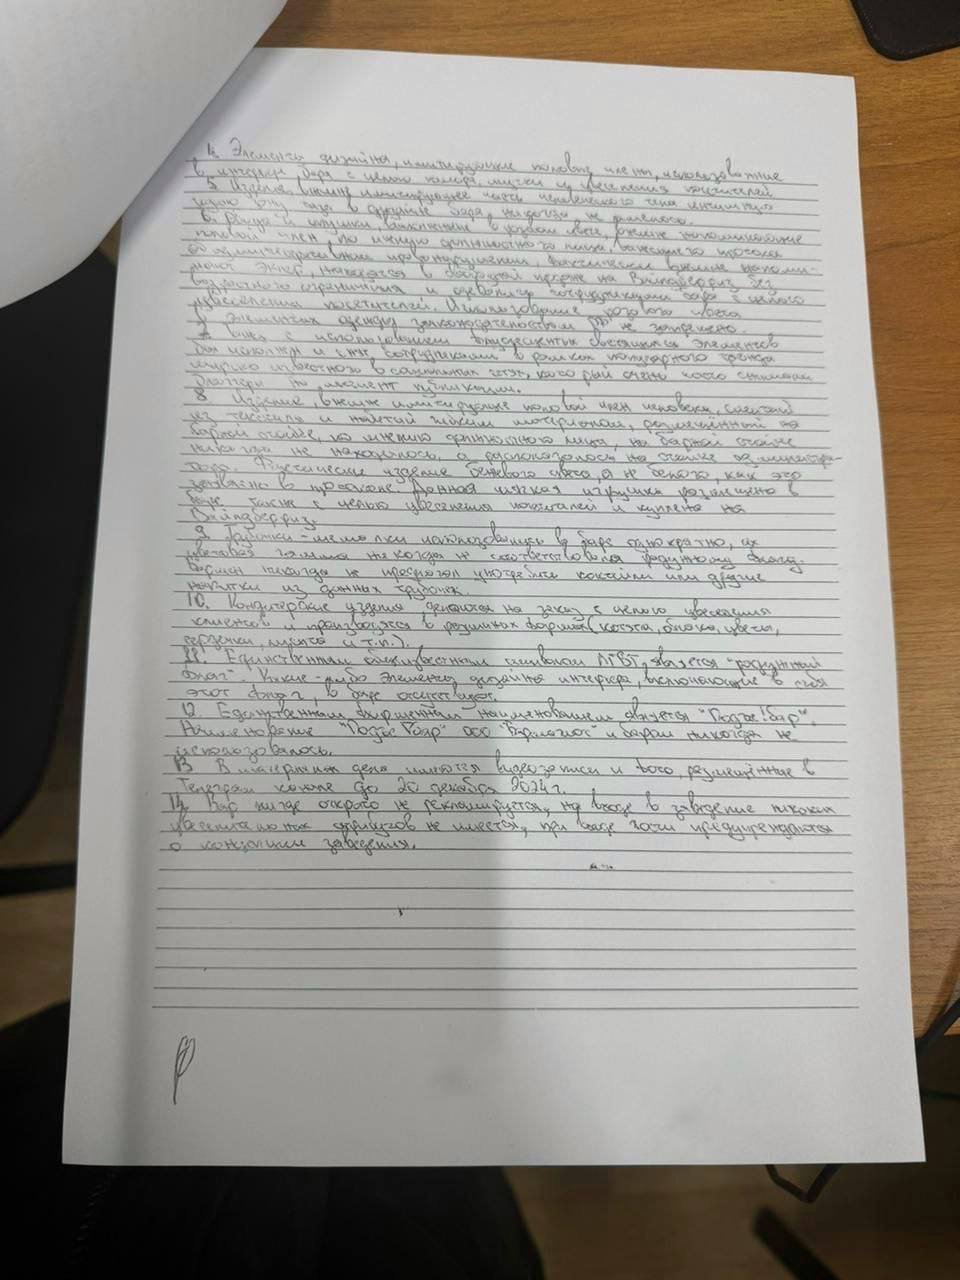 4. Элементы дизайна, имитирующие половые члены, использованные
в интерьере бара с целью юмора, шутки и увеселения посетителей
5. Изделия, внешне имитирующее часть человеческого тела
в баре, никогда не имелось.
6. и игрушки, выполненные в розовом цвете, внешне напоминающие
половой член, по мнению должностного лица, вынесшего протокол
об административном правонарушении, фактически внешне напоми-
нают находятся в свободной продаже на Вайлдберриз без
возрастного ограничения и сотрудниками бара с целью
увеселения посетителей. Использование розового цвета
в элементах одежды законодательством не запрещено.
7. с использованием светящихся элементов
был исполнен и снят сотрудниками в рамках популярного тренда
широко известного в социальных сетях, который очень часто снимали
блоггеры на момент публикации.
8. Изделие, внешне имитирующее половой член человека,
из текстиля и набитый мягким материалом, размещённый на
барной стойке, по мнению должностного лица, на барной стойке
никогда не находилось, а располагалось на стойке администра-
тора. Фактически изделие бежевого цвета, а не белого, как это
заявлено в протоколе. Данная мягкая игрушка размещена в
баре также с целью увеселения посетителей и куплена на
Вайлдберриз.
9. Трубочки использовались в баре однократно, их
цветовая гамма никогда не соответствовала радужному флагу.
Бармен никогда не предлагал употребить коктейли или другие
напитки из данных трубочек.
10. Кондитерские изделия делаются на заказ с целью увеселения
клиентов и производятся в различных формах (котята, облака, цветы,
сердечки, и т.п.).
11. Единственным общеизвестным символом ЛГБТ, является "радужный
флаг". Какие-либо элементы дизайна интерьера, включающие в себя
этот флаг, в баре отсутствуют.
12. Единственным фирменным наименованием является "Подъе!бар".
Наименование ООО и баром никогда не
использовалось.
13. В материалах дела имеются видеозаписи и фото, размещённые в
Телеграм канале до 20 декабря 2024г.
14. Бар нигде открыто не рекламируется, на входе в заведение никаких
увеселительных атрибутов не имеется, при входе гости предупреждаются
о концепции заведения.